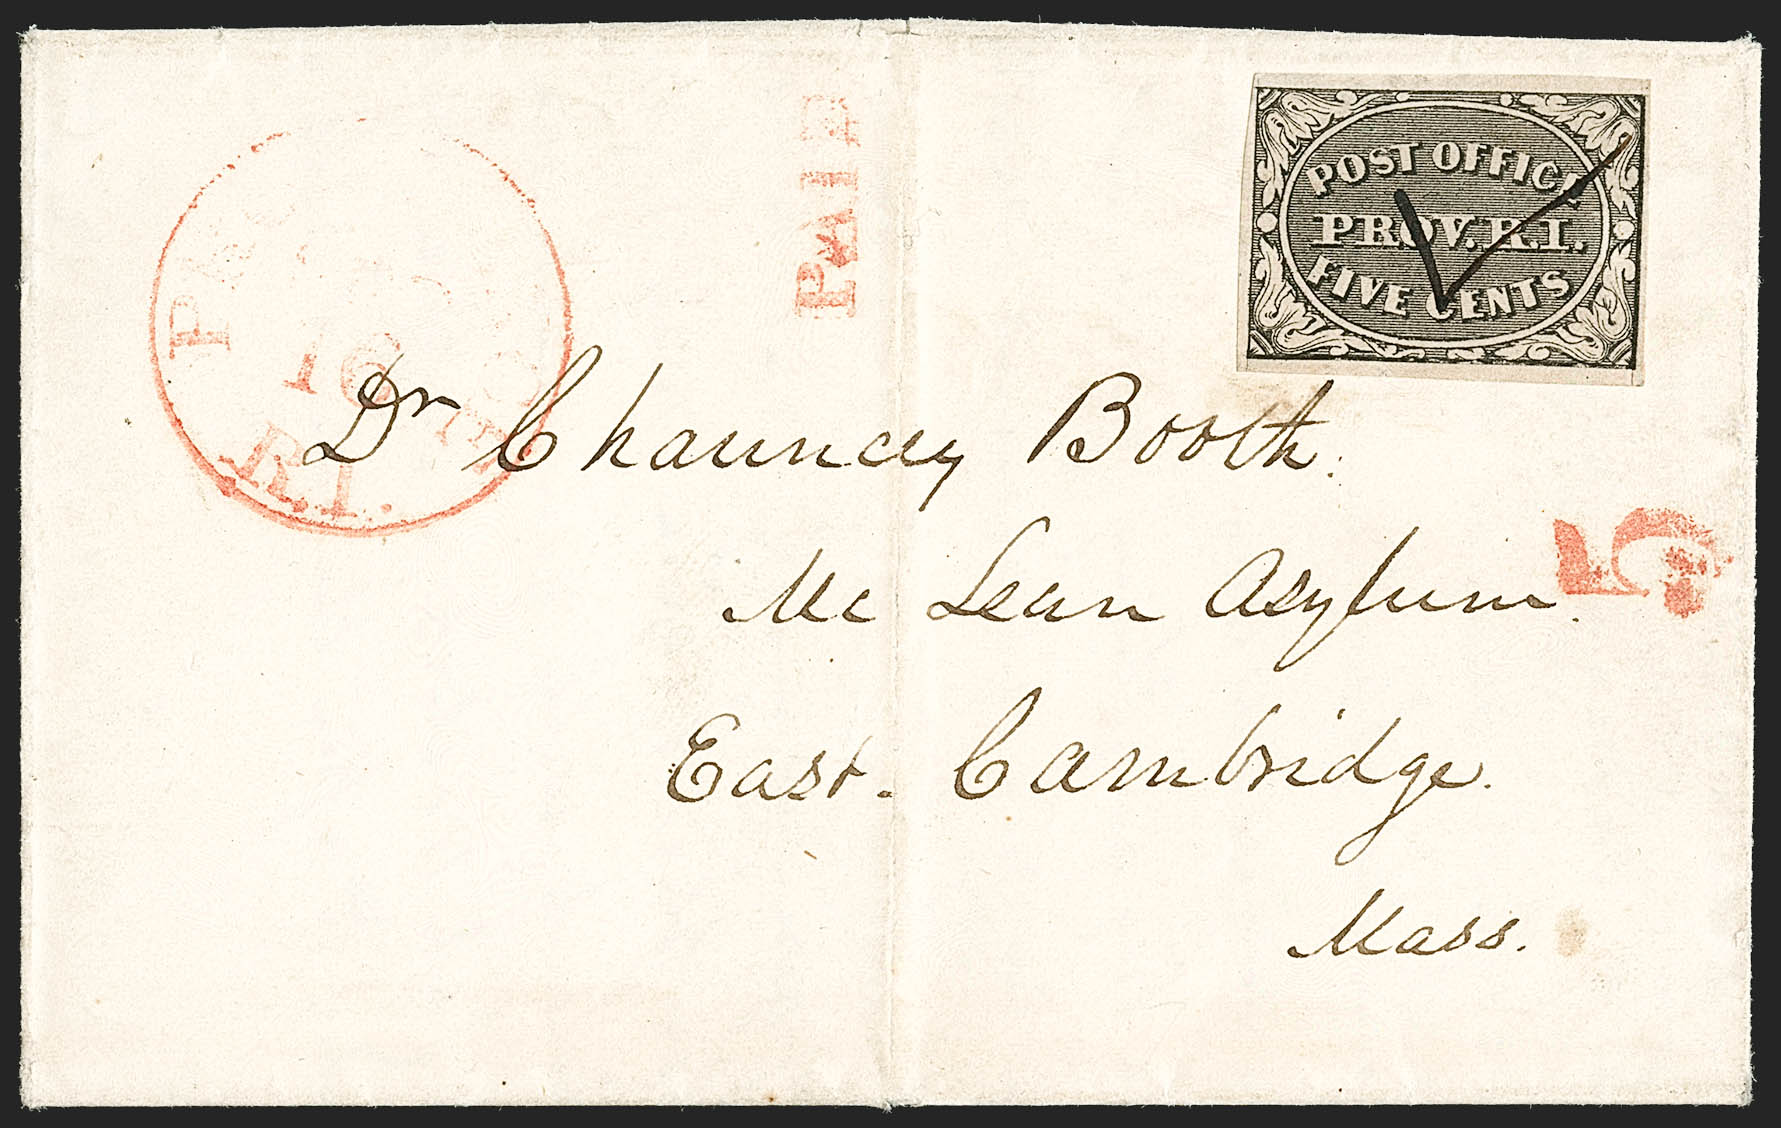 PAID
POST OFFICE
PROV. R.I.
FIVE CENTS
16
R.I.
5
Dr Chauncey Booth.
Mc Lean Asylum.
East. Cambridge.
Mass.